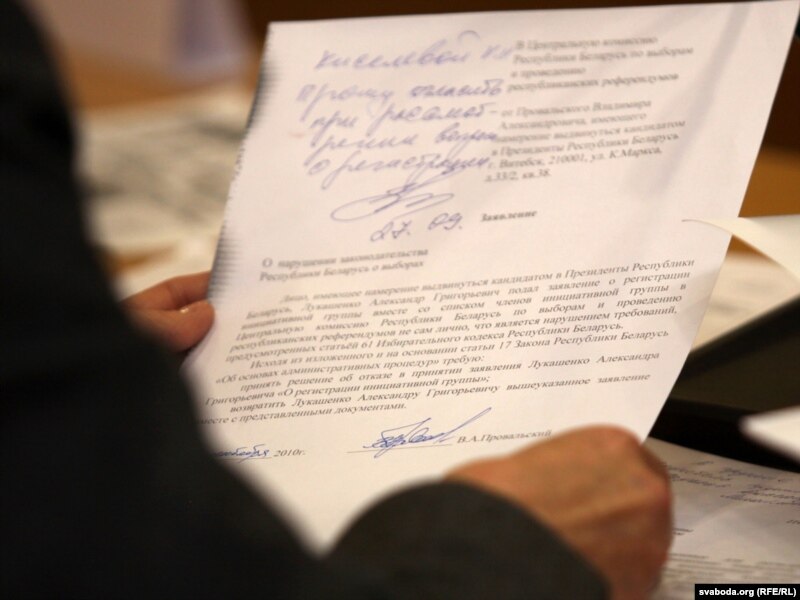 Киселевой Н.Н
Прошу огласить
при рассмот-
рении вопроса
о регистрации
27. 09.
В Центральную комиссию
Республики Беларусь по выборам
и проведению
республиканских референдумов
от Провальского Владимира
Александровича, имеющего
намерение выдвинуться кандидатом
в Президенты Республики Беларусь
г. Витебск, 210001, ул. К.Маркса,
д.33/2, кв.38.
Заявление
О нарушении законодательства
Республики Беларусь о выборах
Лицо, имеющее намерение выдвинуться кандидатом в Президенты Республики
Беларусь, Лукашенко Александр Григорьевич подал заявление о регистрации
инициативной группы вместе со списком членов инициативной группы в
Центральную комиссию Республики Беларусь по выборам и проведению
республиканских референдумов не сам лично, что является нарушением требований,
предусмотренных статьёй 61 Избирательного кодекса Республики Беларусь.
Исходя из изложенного и на основании статьи 17 Закона Республики Беларусь
«Об основах административных процедур» требую:
принять решение об отказе в принятии заявления Лукашенко Александра
Григорьевича «О регистрации инициативной группы»;
возвратить Лукашенко Александру Григорьевичу вышеуказанное заявление
вместе с представленными документами.
2010г.
В.А.Провальский
svaboda.org (RFE/RL)